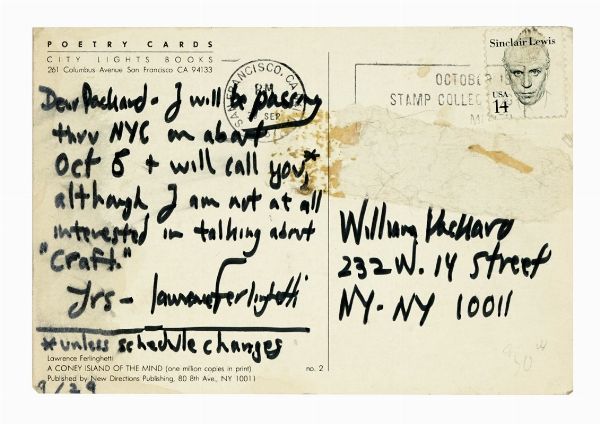 POETRY CARDS
CITY LIGHTS BOOKS
261 Columbus Avenue San Francisco CA 94133
SAN FRANCISCO, CA
PM
SEP
OCTOBER IS
STAMP COLLEC
Sinclair Lewis
USA
14
Dear Packard - I will be passing
thru NYC on about
Oct 5 + will call you,*
although I am not at all
interested in talking about
"craft."
Yrs - Lawrence Ferlinghetti
*unless schedule changes
William Packard
232 W. 14 Street
NY - NY 10011
Lawrence Ferlinghetti
A CONEY ISLAND OF THE MIND (one million copies in print)
no. 2
Published by New Directions Publishing, 80 8th Ave., NY 10011
9/29